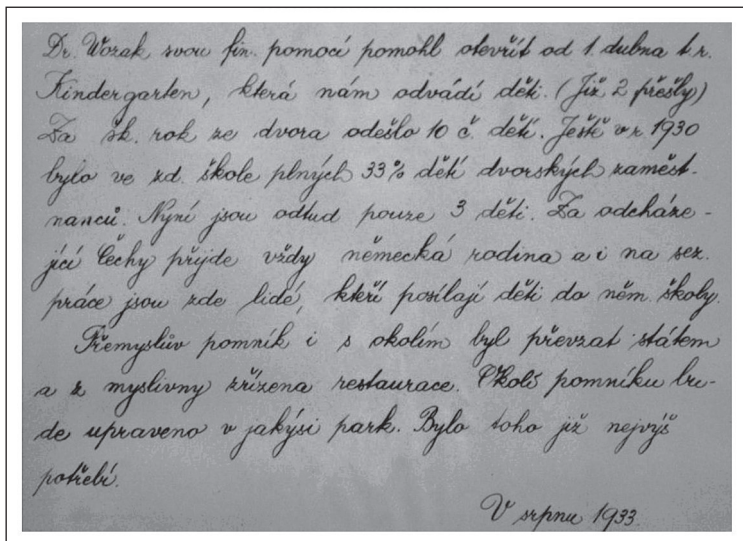 Dr. Wozak svou fin. pomocí pomohl otevřít od 1. dubna t. r.
Kindergarten, která nám odvádí děti. (Již 2 přešly)
Za šk. rok ze dvora odešlo 10 č. dětí. Ještě v r. 1930
bylo ve zd. škole plných 33% dětí dvorských zaměst-
nanců. Nyní jsou odtud pouze 3 děti. Za odcháze-
jící Čechy přijde vždy německá rodina a i na sez.
práce jsou zde lidé, kteří posílají děti do něm. školy.
Přemyslův pomník i s okolím byl převzat státem
a z myslivny zřízena restaurace. Okolí pomníku bu-
de upraveno v jakýsi park. Bylo toho již nejvýš
potřebí.
V srpnu 1933.